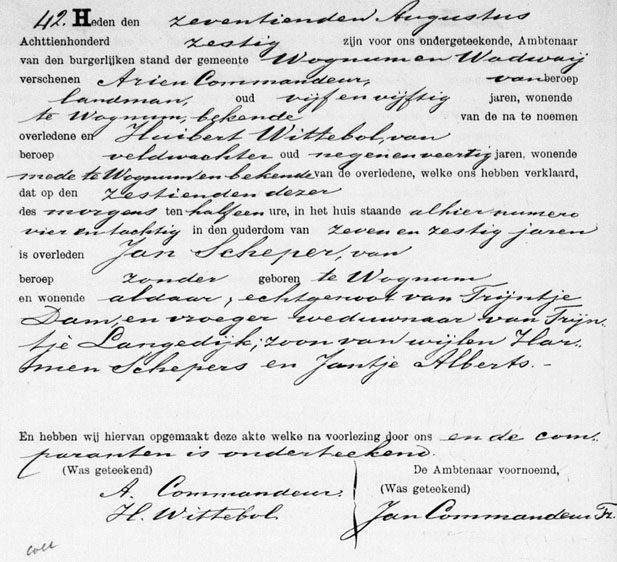 42. Heden den zeventienden Augustus
Achttienhonderd zestig zijn voor ons ondergeteekende, Ambtenaar
van den burgerlijken stand der gemeente Wognum en Wadwaij
verschenen Arien Commandeur, van beroep
landman, oud vijf en vijftig jaren, wonende
te Wognum, bekende van de na te noemen
overledene en Huibert Wittebol, van
beroep veldwachter oud negenenveertig jaren, wonende
mede te Wognum en bekende van de overledene, welke ons hebben verklaard,
dat op den zestienden dezer
des morgens ten half een ure, in het huis staande alhier numero
vier en tachtig in den ouderdom van zeven en zestig jaren
is overleden Jan Scheper, van
beroep zonder geboren te Wognum
en wonende aldaar, echtgenoot van Trijntje
Dam, en vroeger weduwnaar van Trijn-
tje Langedijk; zoon van wijlen Har-
men Schepers en Jantje Alberts. -
En hebben wij hiervan opgemaakt deze akte welke na voorlezing door ons en de com-
paranten is onderteekend.
(Was geteekend)
A. Commandeur.
H. Wittebol
De Ambtenaar voornoemd,
(Was geteekend)
Jan Commandeur Fz.
coll